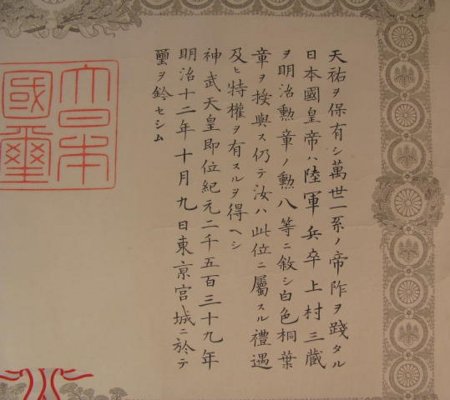 天祐ヲ保有シ萬世一系ノ帝祚ヲ踐タル
日本國皇帝ハ陸軍兵卒上村三蔵
ヲ明治勲章ノ勲八等ニ敘シ白色桐葉
章ヲ授與ス仍テ汝ハ此位ニ屬スル禮遇
及ヒ特權ヲ有スルヲ得ヘシ
神武天皇即位紀元二千五百三十九年
明治十二年十月九日東京宮城ニ於テ
璽ヲ鈐セシム
大日本
國璽